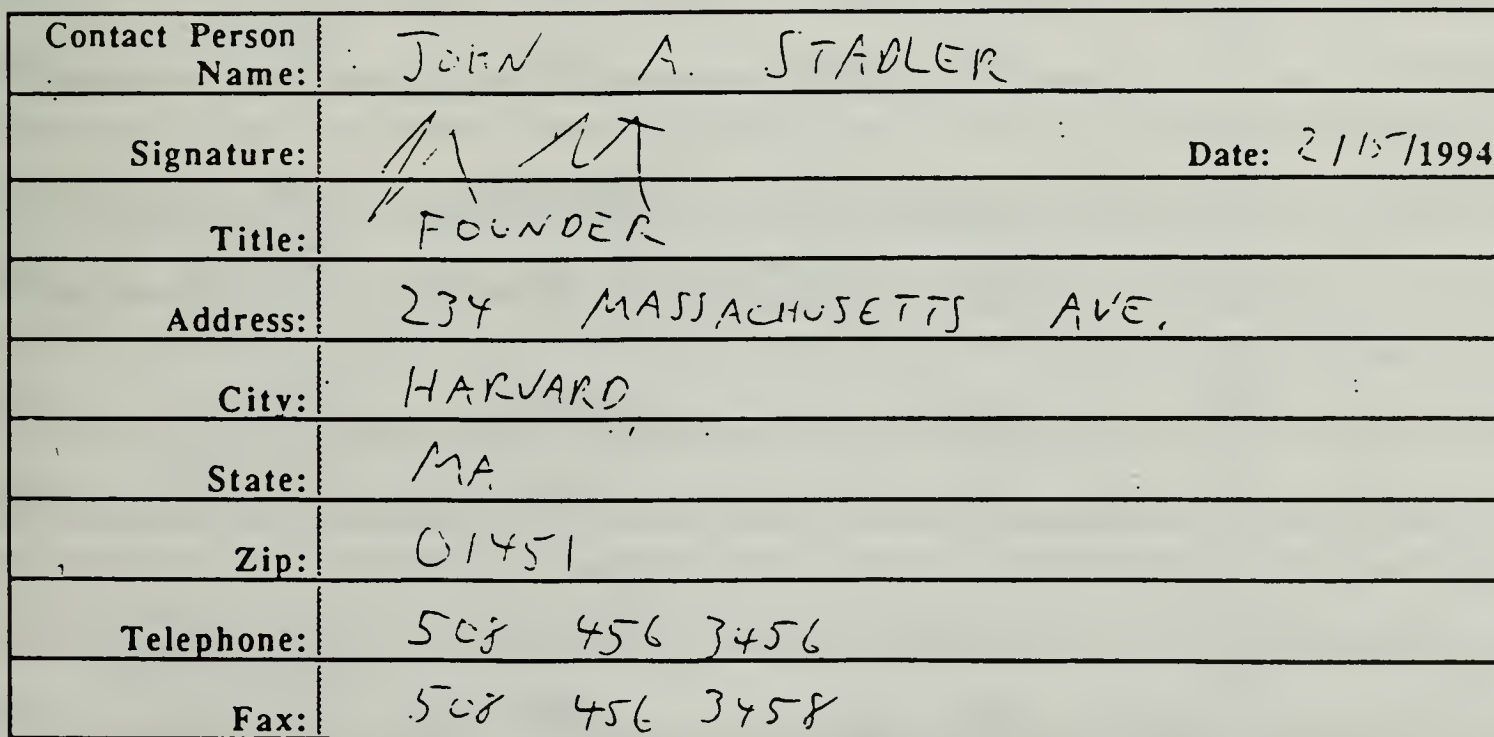 Contact Person
Name: JOHN A. STADLER
Signature: Date: 2/15/1994
Title: FOUNDER
Address: 234 MASSACHUSETTS AVE.
City: HARVARD
State: MA
Zip: 01451
Telephone: 508 456 3456
Fax: 508 456 3458